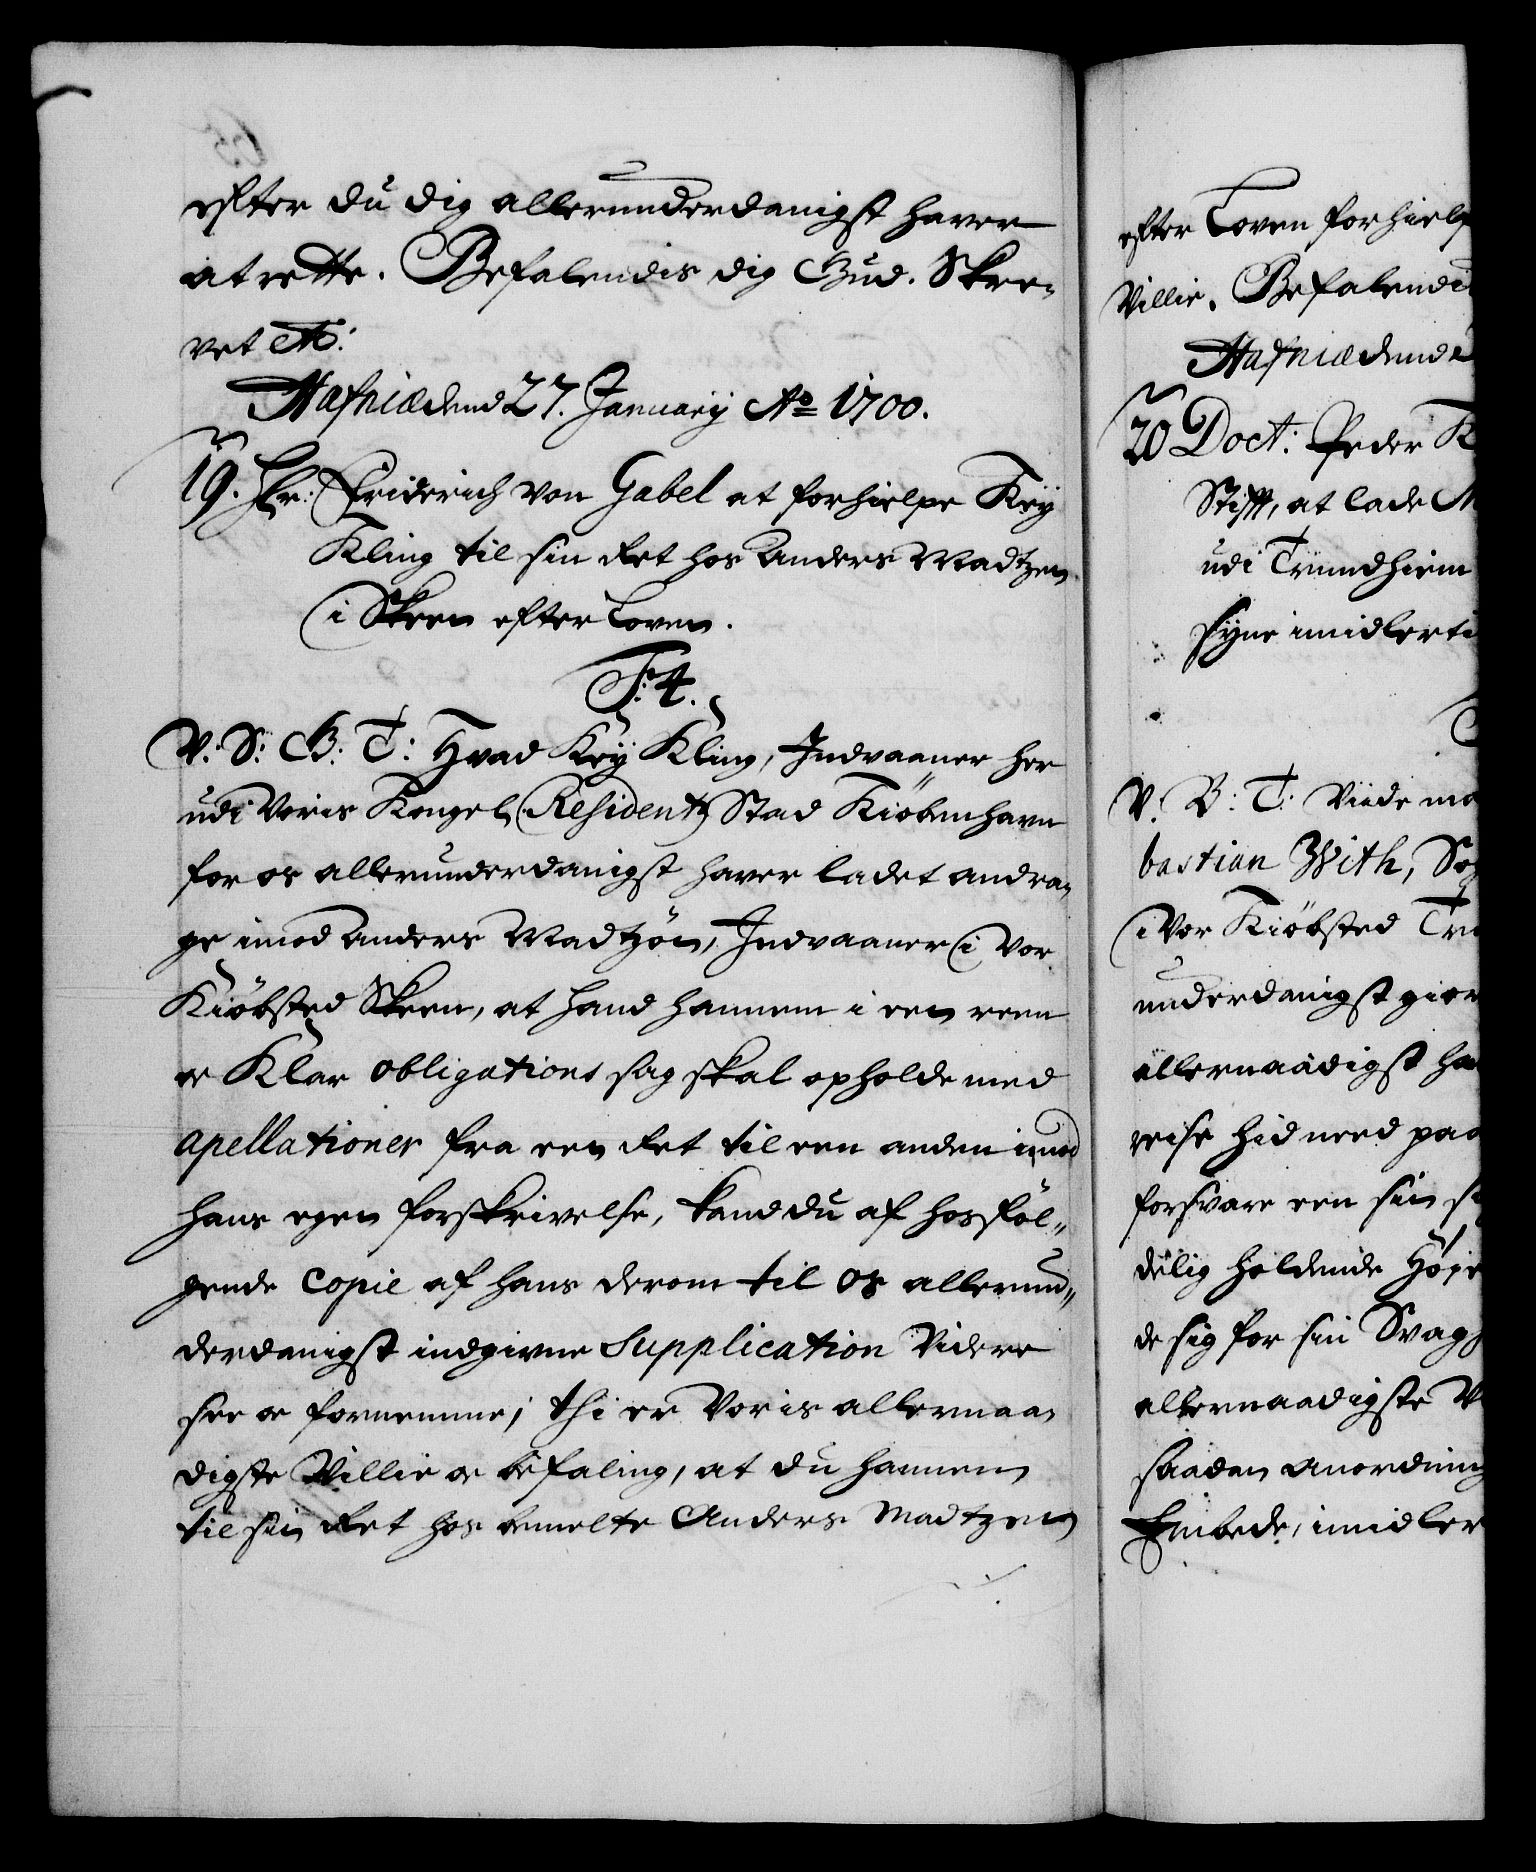 efter du dig allerunderdanigst haver
at rette. Befalendis dig Gud. Skre-
vet etc:
Hafniæ dend 27. Januarij Ao 1700.
19. Hr: Friderich von Gabel at forhielpe Key
Kling til sin Ret hos Anders Madtzen
i Skeen efter Loven.
F: 4.
V: S: G: T: Hvad Key Kling, Indvaaner her
udi Voris Kongel. Residentz Stad Kiöbenhavn
for os allerunderdanigst haver ladet andra-
ge imod Anders Madtzön, Indvaaner i Vor
Kiöbsted Skeen, at hand hannem i een reen
oc Klar obligations sag skal opholde med
apellationer fra een Ret til een anden imod
hans egen forskrivelse, kand du af hosföl-
gende Copie af hans derom til os allerun-
derdanigst indgivne Supplication Videre
see oc fornemme; thi er Voris allernaa-
digste Villie oc befaling, at du hannem
til sin Ret hos bemelte Anders Madtzen
efter Loven forhielp
Villie. Befalendi
Hafniæ dend 2
20 Doct: Peder K
Stift, at lade M
udi Trundhiem
syne imidlerti
V. G: T: Viide ma
bastian With, So
i Vor Kiöbsted Tru
underdanigst gior
allernaadigst ha
reise hid need paa
forsvare een sin s
delig holdende Høye
de sig for sin Svag
allernaadigste V
saadan anordning
Embede, imidler